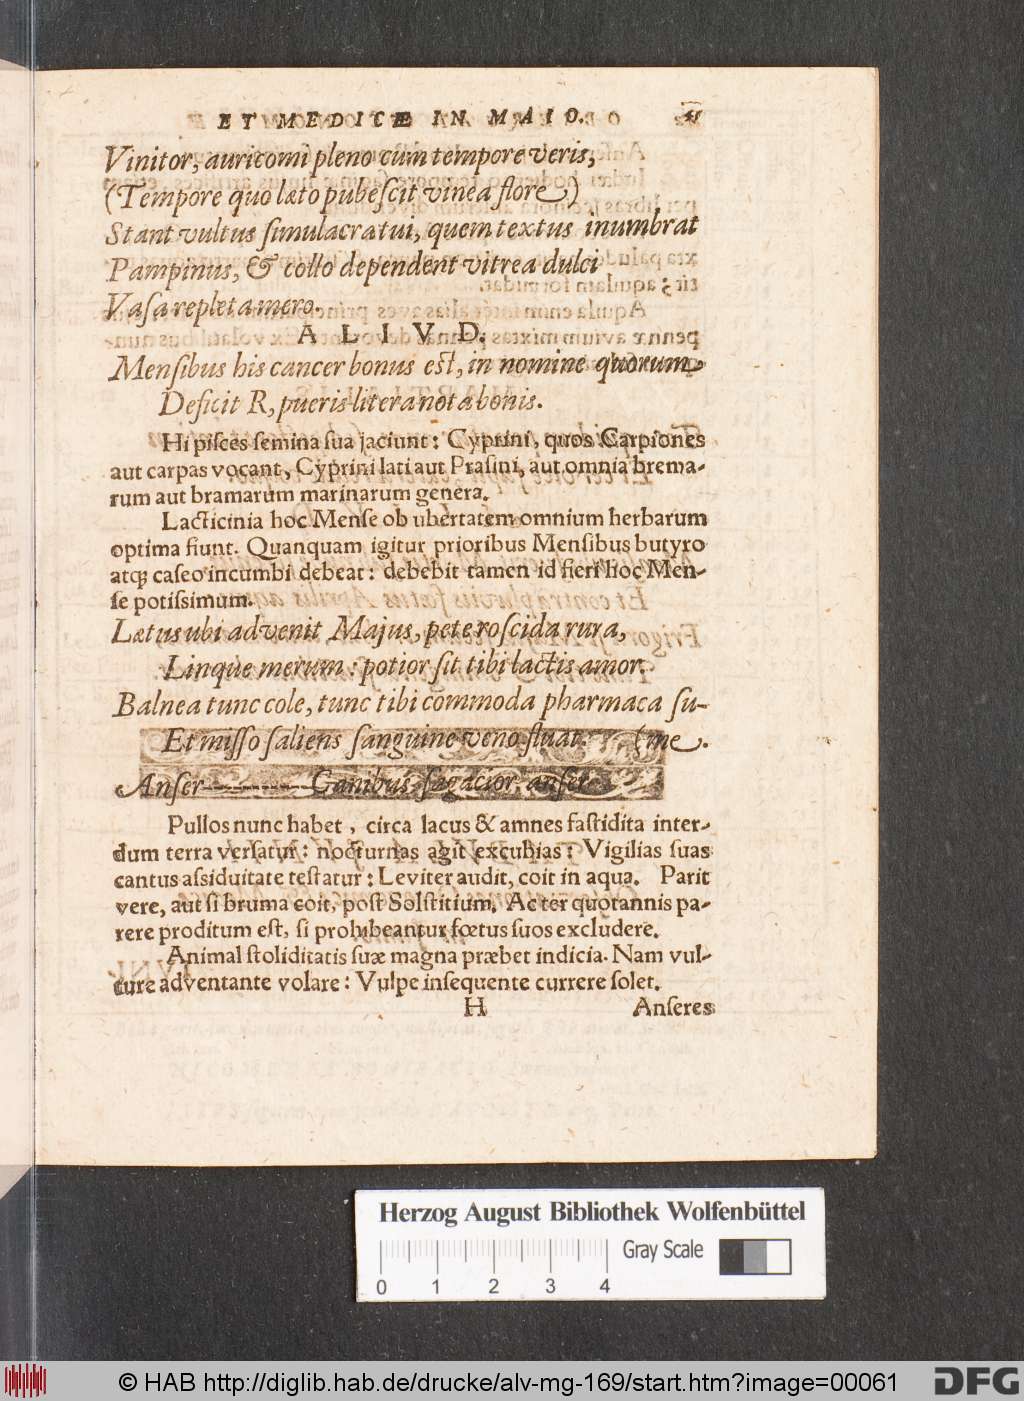 ET MEDICÆ IN MAIO.
Vinitor, auricomi pleno cum tempore veris,
(Tempore quo læto pubeſcit vinea flore)
Stant vultus ſimulacra tui, quem textus inumbrat
Pampinus, & collo dependent vitrea dulci
Vaſa repleta mero.
ALIVD.
Menſibus his cancer bonus est, in nomine quorum
Deficit R, pueris litera nota bonis.
Hi piſces ſemina ſua jaciunt: Cyprini, quos Carpiones
aut carpas vocant, Cyprini lati aut Praſini, aut omnia brema-
rum aut bramarum marinarum genera.
Lacticinia hoc Menſe ob ubertatem omnium herbarum
optima fiunt. Quanquam igitur prioribus Menſibus butyro
atq; caſeo incumbi debeat: debebit tamen id fieri hoc Men-
ſe potiſsimum.
Lætus ubi advenit Majus, pete roſcida rura,
Linque merum: potior ſit tibi lactis amor.
Balnea tunc cole, tunc tibi commoda pharmaca ſu-
Et miſſo ſaliens ſanguine veno fluat. (me.
Anſer---------Canibus ſagacior anſer.
Pullos nunc habet, circa lacus & amnes faſtidita inter-
dum terra verſatur: nocturnas agit excubias: Vigilias ſuas
cantus aſsiduitate teſtatur: Leviter audit, coit in aqua. Parit
vere, aut ſi bruma coit, poſt Solſtitium. Ac ter quotannis pa-
rere proditum eſt, ſi prohibeantur fœtus ſuos excludere.
Animal ſtoliditatis ſuæ magna præbet indicia. Nam vul-
ture adventante volare: Vulpe inſequente currere ſolet.
H Anſeres
Herzog August Bibliothek Wolfenbüttel
Gray Scale
0 1 2 3 4
© HAB http://diglib.hab.de/drucke/alv-mg-169/start.htm?image=00061
DFG